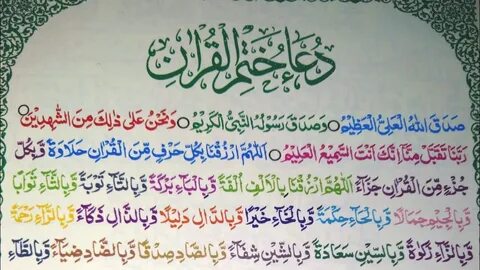 دُعَاءُ خَتْمِ الْقُرْاٰنِ
صَدَقَ اللّٰهُ الْعَلِيُّ الْعَظِيْمُ ○ وَصَدَقَ رَسُوْلُهُ النَّبِيُّ الْكَرِيْمُ ○ وَنَحْنُ عَلٰى ذٰلِكَ مِنَ الشّٰهِدِيْنَ ○
رَبَّنَا تَقَبَّلْ مِنَّا اِنَّكَ اَنْتَ السَّمِيْعُ الْعَلِيْمُ ○ اَللّٰهُمَّ ارْزُقْنَا بِكُلِّ حَرْفٍ مِّنَ الْقُرْاٰنِ حَلَاوَةً وَّبِكُلِّ
جُزْءٍ مِّنَ الْقُرْاٰنِ جَزَآءً اَللّٰهُمَّ ارْزُقْنَا بِالْاَلِفِ اُلْفَةً وَّبِالْبَآءِ بَرَكَةً وَّبِالتَّآءِ تَوْبَةً وَّبِالثَّآءِ ثَوَابًا
وَّبِالْجِيْمِ جَمَالًا وَّبِالْحَآءِ حِكْمَةً وَّبِالْخَآءِ خَيْرًا وَّبِالدَّالِ دَلِيْلًا وَّبِالذَّالِ ذَكَآءً وَّبِالرَّآءِ رَحْمَةً
وَّبِالزَّآءِ زَكٰوةً وَّبِالسِّيْنِ سَعَادَةً وَّبِالشِّيْنِ شِفَآءً وَّبِالصَّادِ صِدْقًا وَّبِالضَّادِ ضِيَآءً وَّبِالطَّآءِ